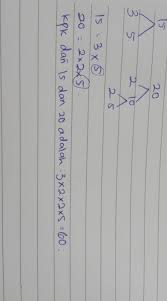 15
3 5
20
2 10
2 5
15 = 3 x 5
20 = 2 x 2 x 5
KPK dari 15 dan 20 adalah 3 x 2 x 2 x 5 = 60.